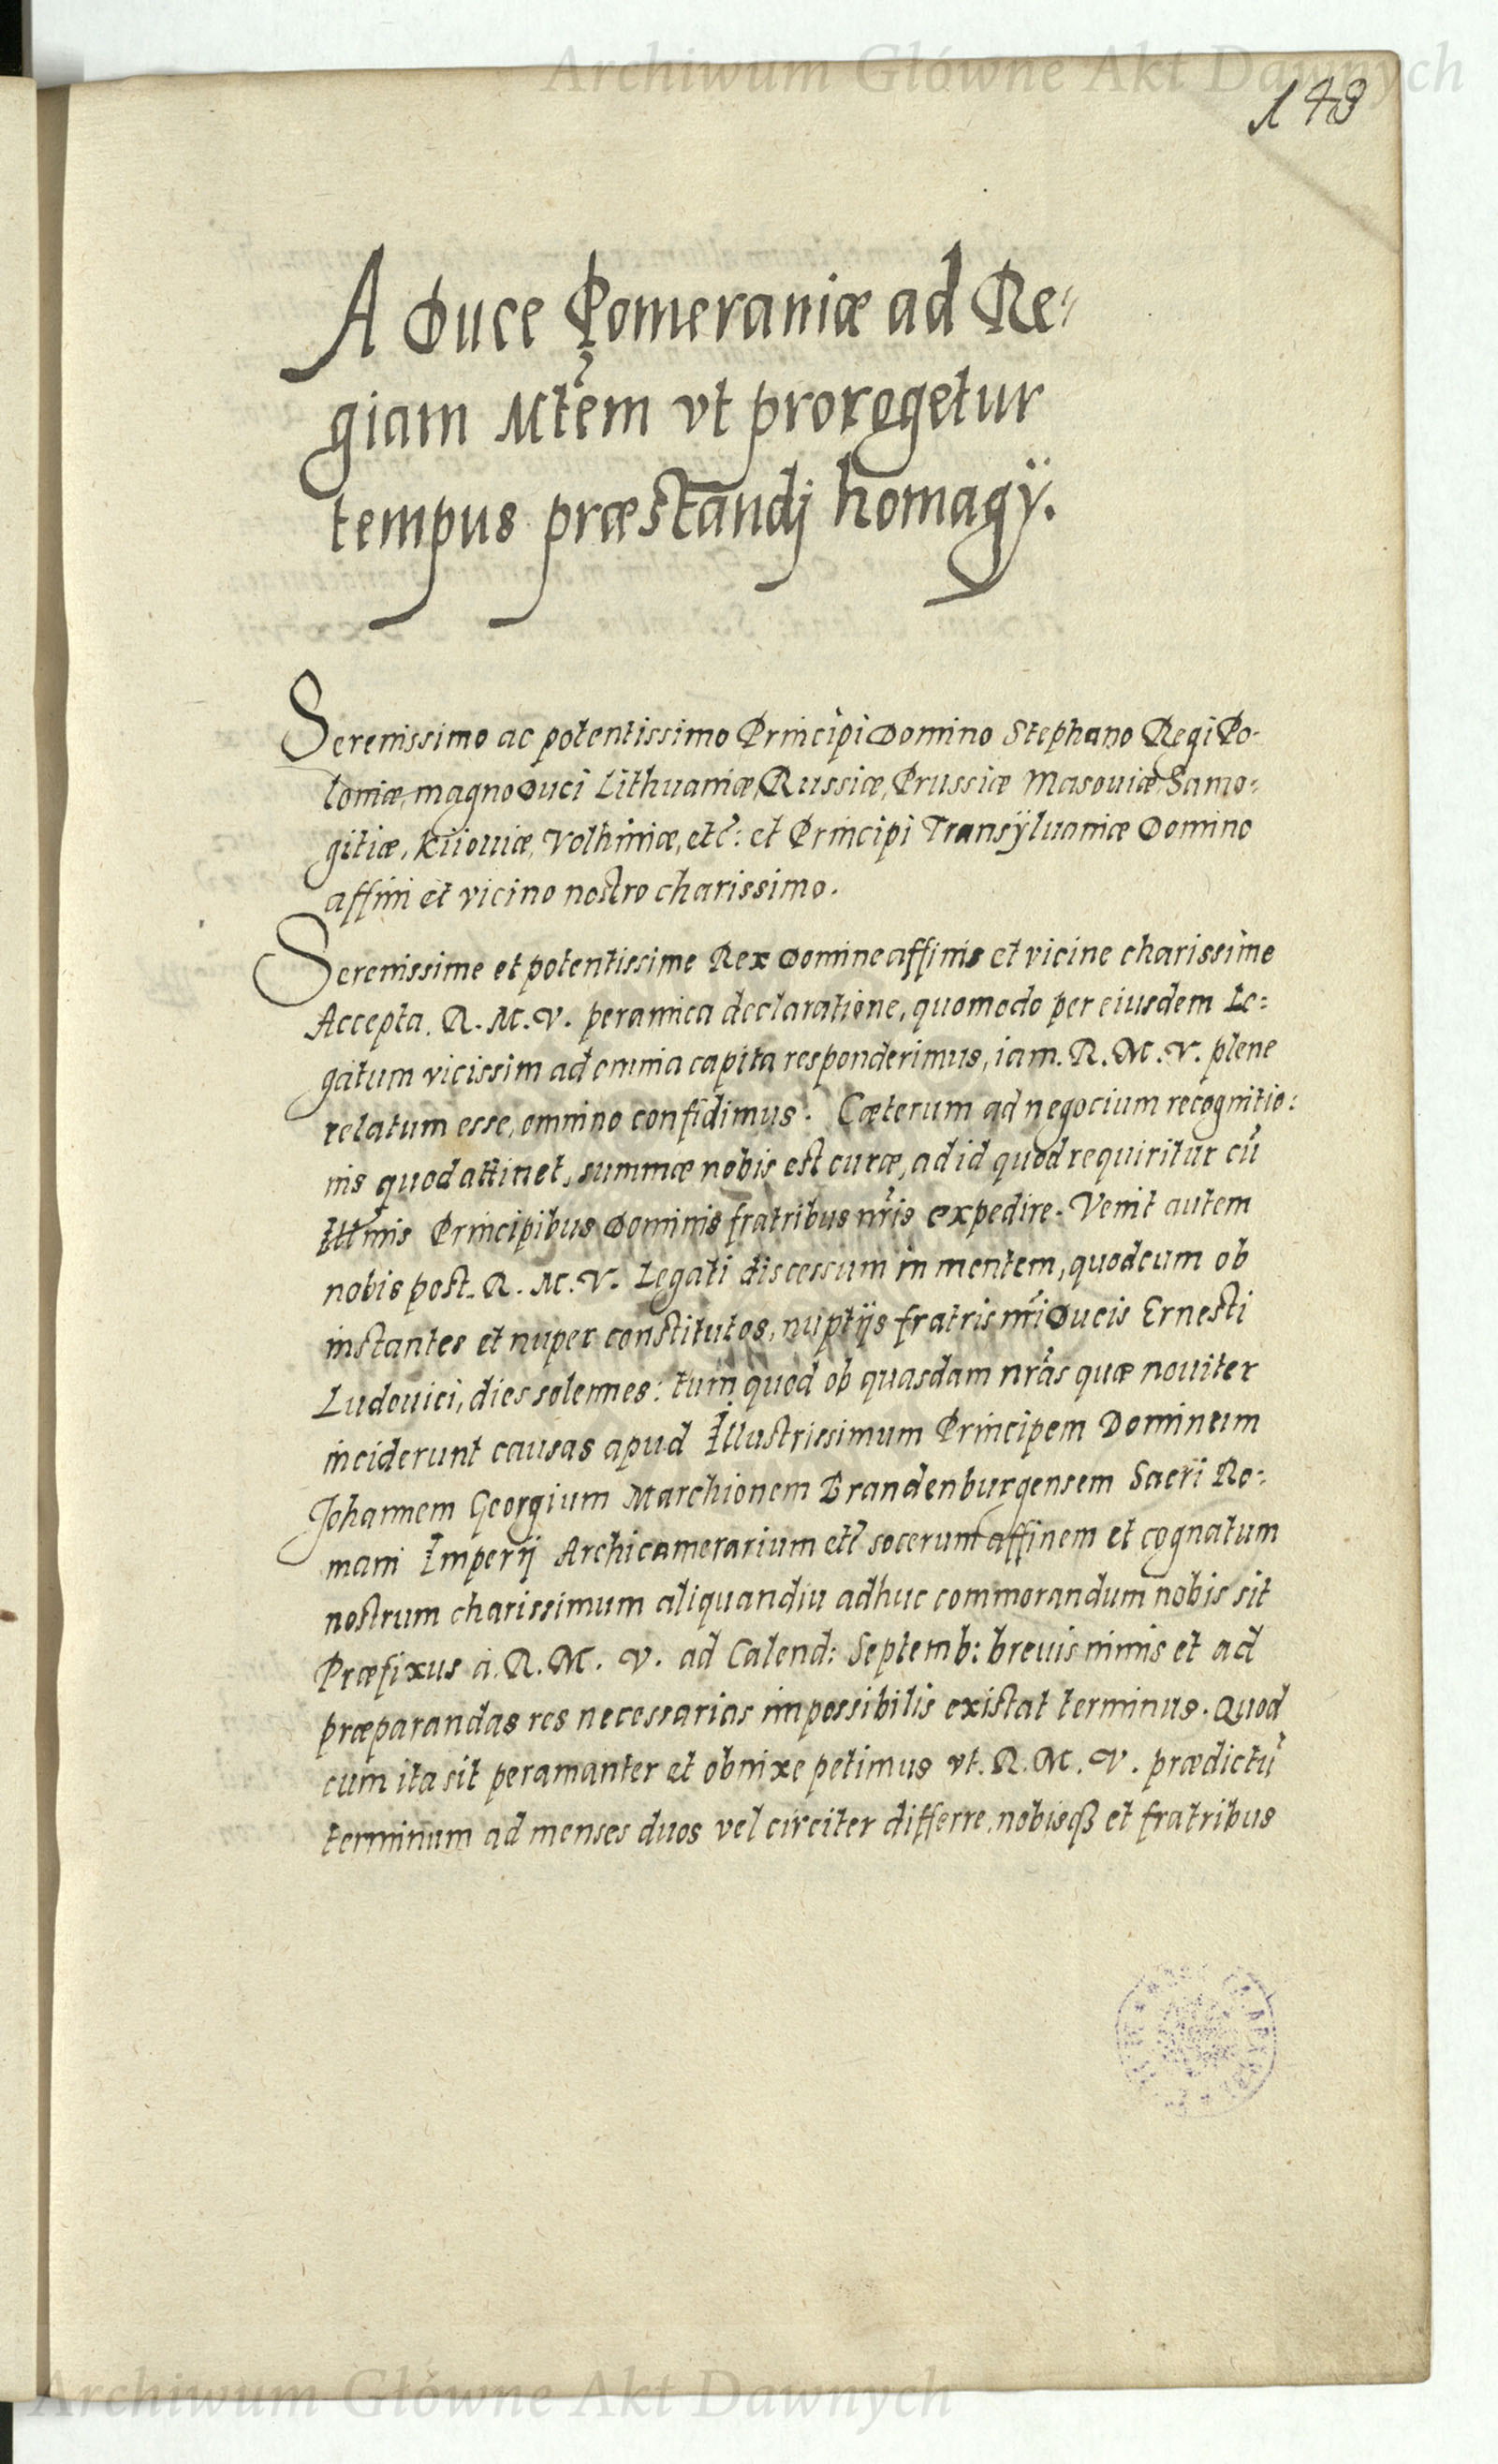 Archiwum Główne Akt Dawnych
148
A Duce Pomeraniæ ad Re-
giam Mtem vt prorogetur
tempus præstandj homagÿ.
Serenissimo ac potentissimo Principi Domino Stephano Regi Po-
loniæ, magno Duci Lithuaniæ, Russiæ, Prussiæ Masouiæ Samo-
gitiæ, Kiiouiæ, Volhiniæ, etc: et Principi Transÿluaniæ Domino
affini et vicino nostro charissimo.
Serenissime et potentissime Rex Domine affinis et vicine charissime
Accepta. R. M. V. peramica declaratione, quomodo per eiusdem Le-
gatum vicissim ad omnia capita responderimus, iam. R. M. V. plene
relatum esse, omnino confidimus. Cæterum ad negocium recognitio:
nis quod attinet, summæ nobis est curæ, ad id quod requiritur cū
Illmis Principibus Dominis fratribus nris expedire. Venit autem
nobis post. R. M. V. Legati discessum in mentem, quod cum ob
instantes et nuper constitutos, nuptijs fratris nri Ducis Ernesti
Ludouici, dies solennes: tum quod ob quasdam nras quæ nouiter
inciderunt causas apud Illustrissimum Principem Dominum
Johannem Georgium Marchionem Brandenburgensem Sacri Ro-
mani Imperij Archicamerarium etc socerum affinem et cognatum
nostrum charissimum aliquandiu adhuc commorandum nobis sit
Præfixus a. R. M. V. ad Calend: Septemb: breuis nimis et ad
præparandas res necessarias impossibilis existat terminus. Quod
cum ita sit peramanter et obnixe petimus vt. R. M. V. prædictū
terminum ad menses duos vel circiter differre, nobisqȝ et fratribus
Archiwum Główne Akt Dawnych